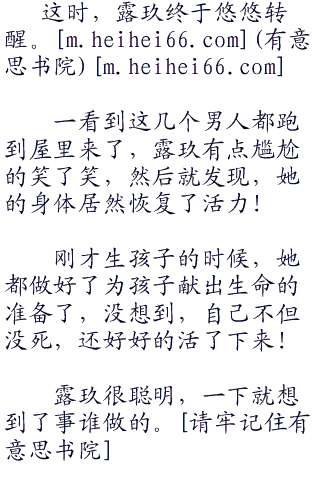 这时，露玖终于悠悠转
醒。[m.heihei66.com](有意
思书院)[m.heihei66.com]
一看到这几个男人都跑
到屋里来了，露玖有点尴尬
的笑了笑，然后就发现，她
的身体居然恢复了活力！
刚才生孩子的时候，她
都做好了为孩子献出生命的
准备了，没想到，自己不但
没死，还好好的活了下来！
露玖很聪明，一下就想
到了事谁做的。[请牢记住有
意思书院]